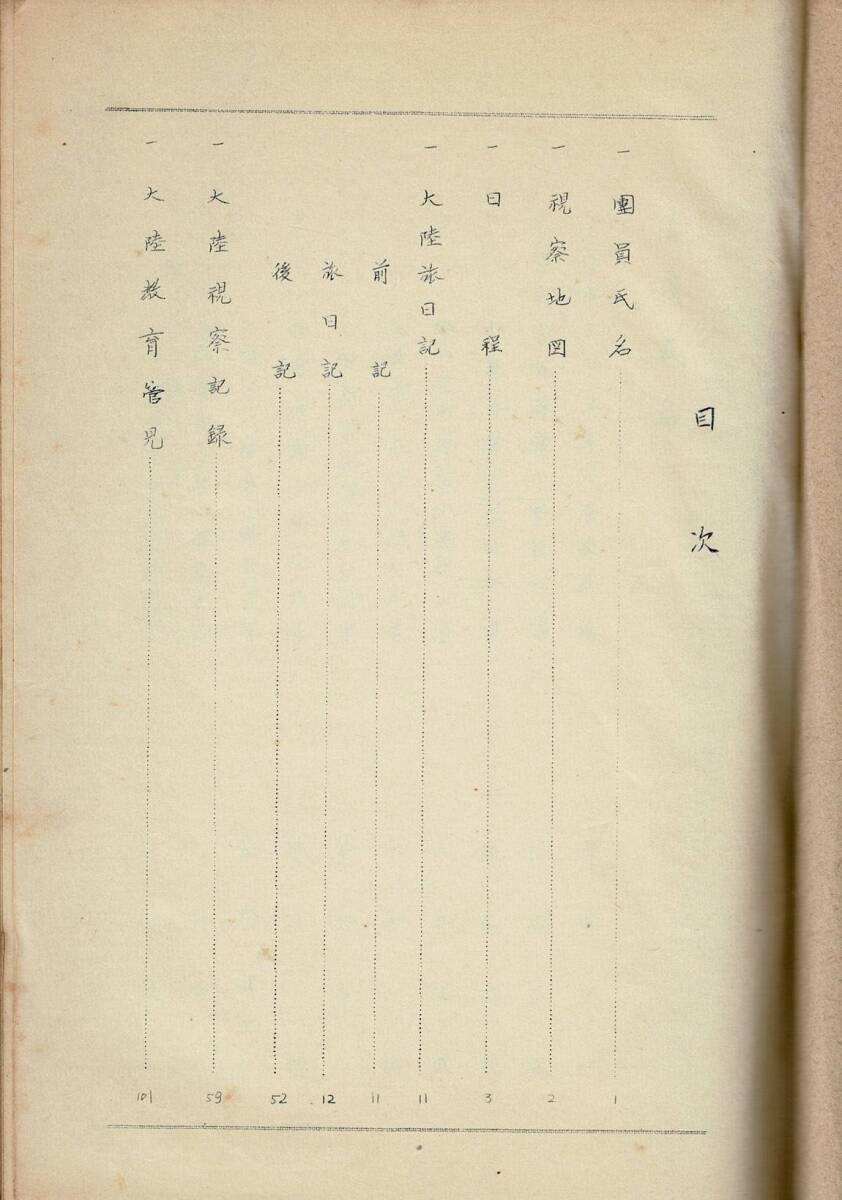 目次
一 團員氏名 1
一 視察地図 2
一 日程 3
一 大陸旅日記 11
前記 11
旅日記 12
後記 52
一 大陸視察記録 59
一 大陸教育管見 101